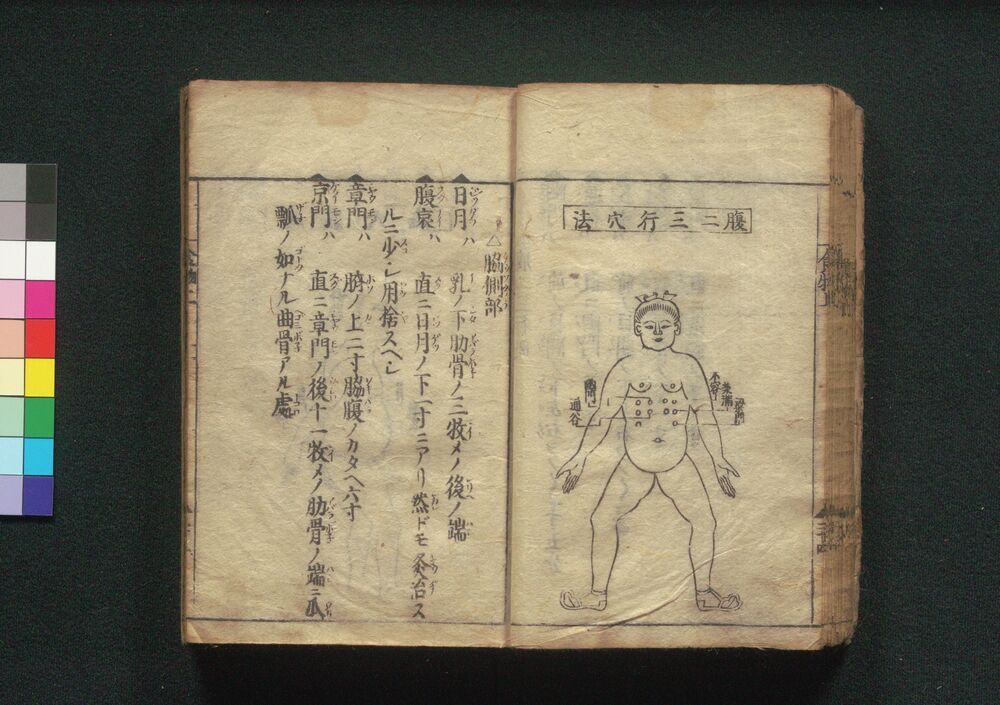 腹二三行穴法
不容
承満
梁門
通谷
△脇側部
日月ハ 乳ノ下肋骨ノ三枚メノ後ノ端
腹哀ハ 直ニ日月ノ下一寸ニアリ然ドモ灸治ス
ルニ少シ用捨スヘシ
章門ハ 臍ノ上二寸脇腹ノカタヘ六寸
京門ハ 直ニ章門ノ後十一枚メノ肋骨ノ端ニ瓜
瓢ノ如ナル曲骨アル處